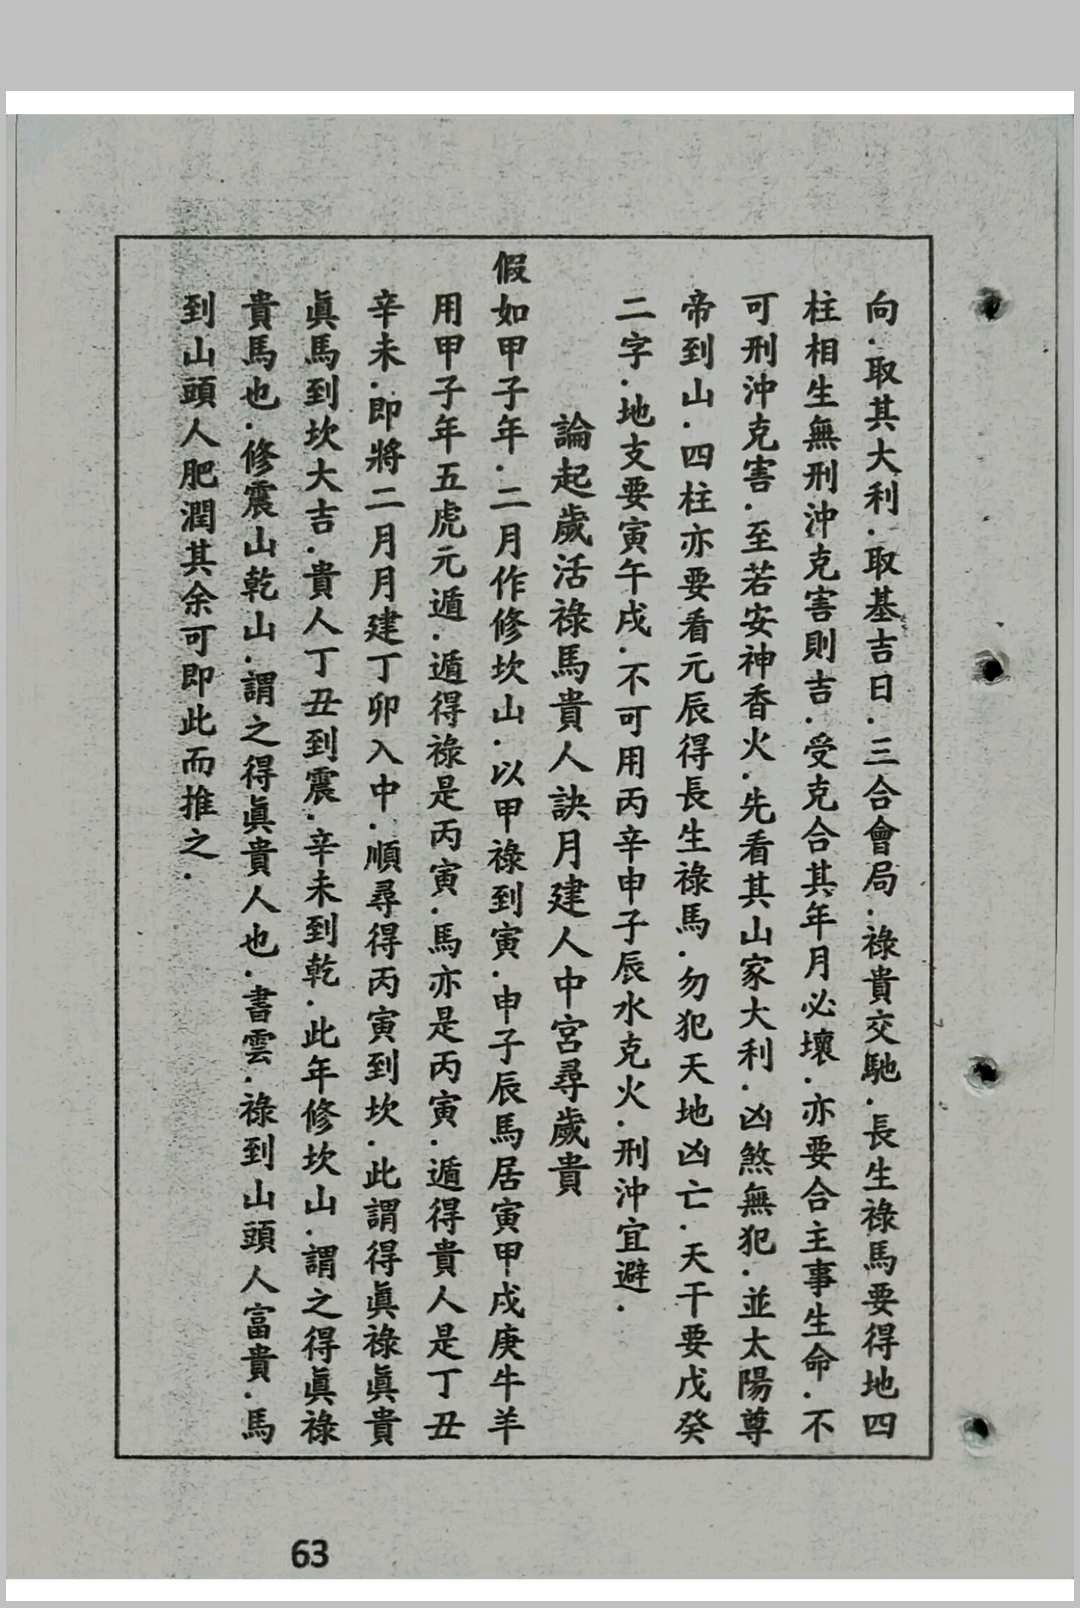 向．取其大利．取基吉日．三合會局．祿貴交馳．長生祿馬要得地四
柱相生無刑沖克害則吉．受克合其年月必壞．亦要合主事生命．不
可刑沖克害．至若安神香火．先看其山家大利．凶煞無犯．並太陽尊
帝到山．四柱亦要看元辰得長生祿馬．勿犯天地凶亡．天干要戊癸
二字．地支要寅午戌．不可用丙辛申子辰水克火．刑沖宜避．
論起歲活祿馬貴人訣月建人中宮尋歲貴
假如甲子年．二月作修坎山．以甲祿到寅．申子辰馬居寅甲戌庚牛羊
用甲子年五虎元遁．遁得祿是丙寅．馬亦是丙寅．遁得貴人是丁丑
辛未．即將二月月建丁卯入中．順尋得丙寅到坎．此謂得眞祿眞貴
眞馬到坎大吉．貴人丁丑到震．辛未到乾．此年修坎山．謂之得眞祿
貴馬也．修震山乾山．謂之得眞貴人也．書雲．祿到山頭人富貴．馬
到山頭人肥潤其余可即此而推之．
63